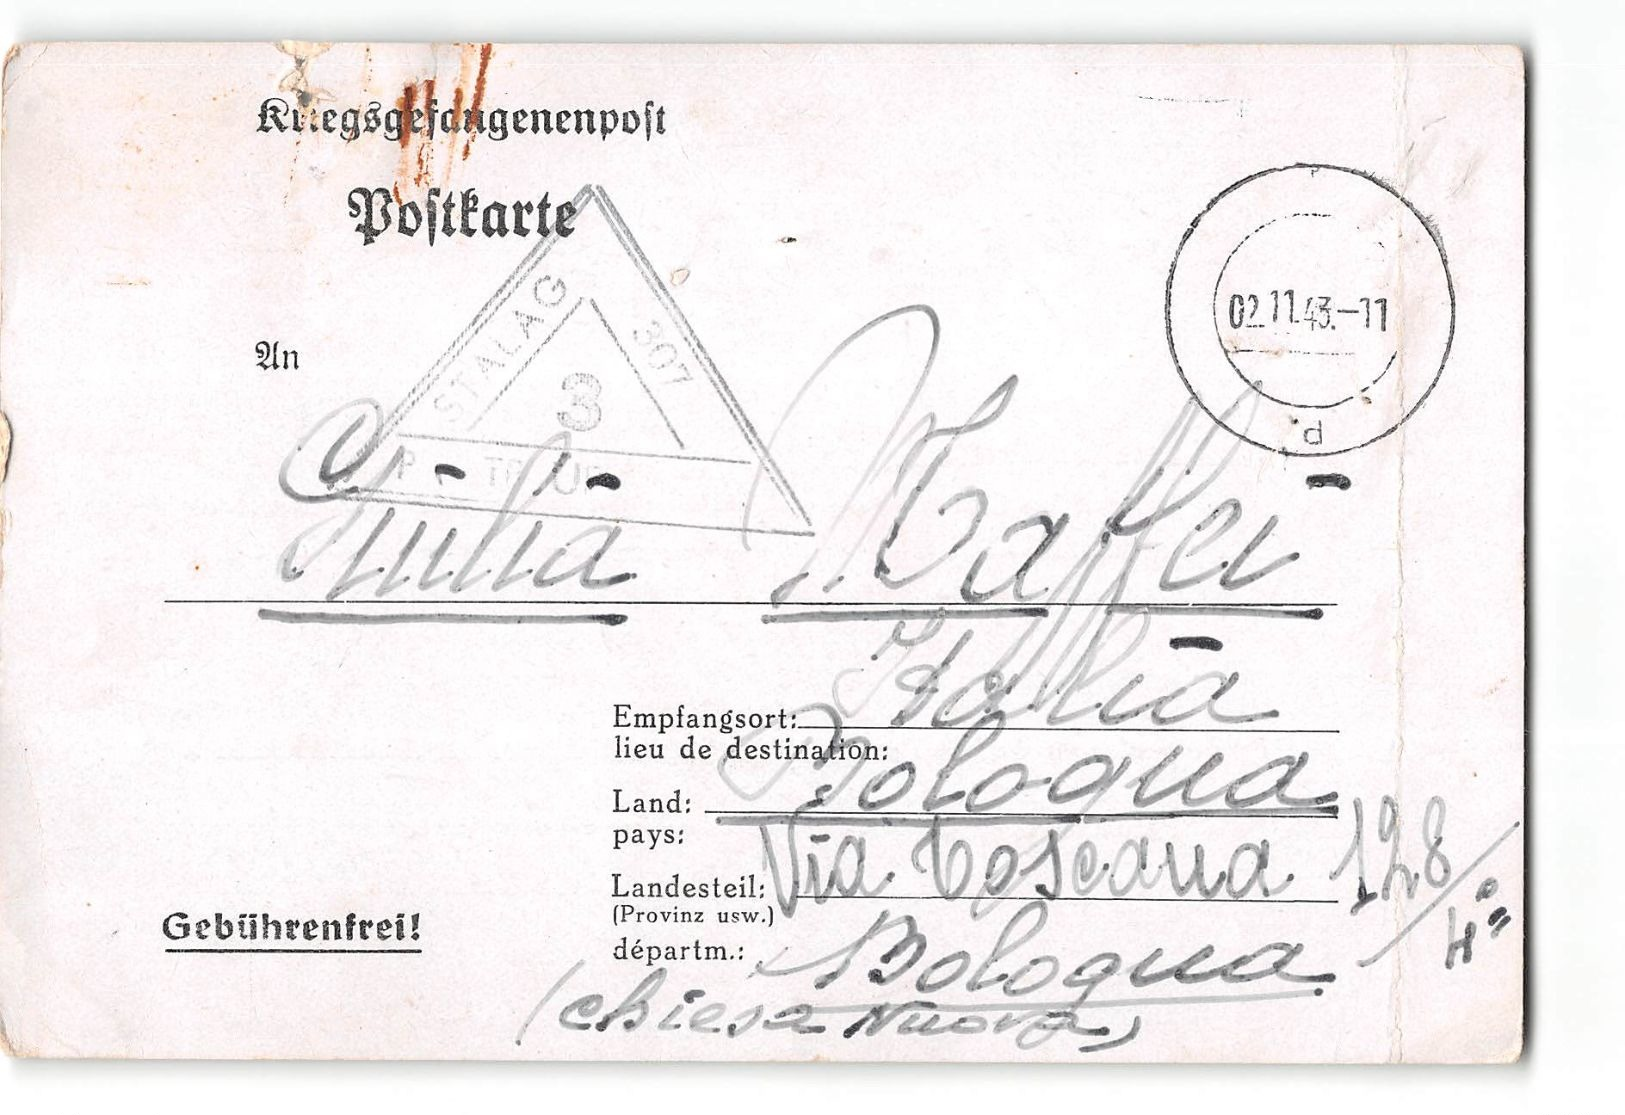 Kriegsgefangenenpost
Postkarte
STALAG 307
3
02.11.43.-11
d
An
Giulia Maffei
Empfangsort: Italia
lieu de destination:
Land: Bologna
pays:
Landesteil: Via Toscana 128/4°
(Provinz usw.)
départm.: Bologna
(chiesa Nuova)
Gebührenfrei!